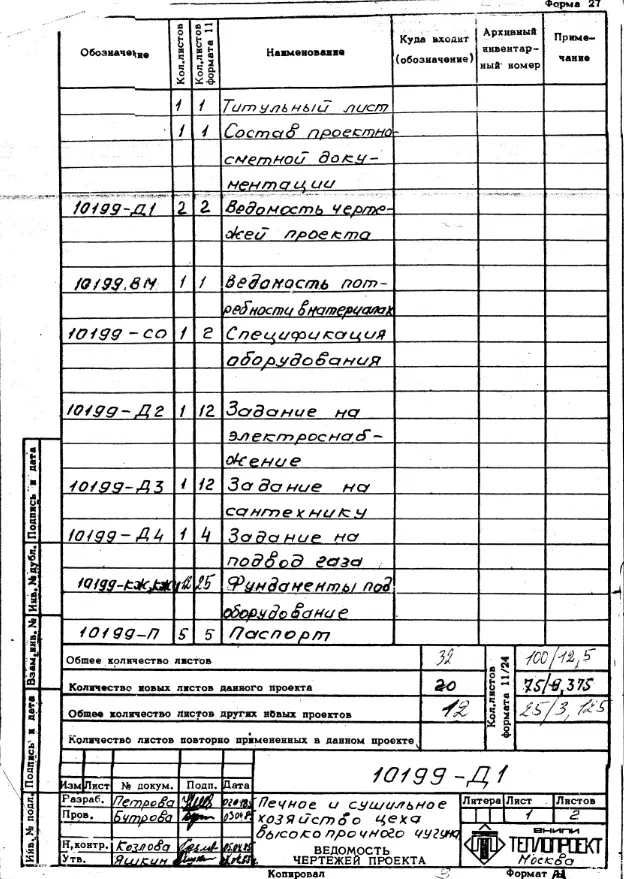 Форма 27
Обозначение Кол.листов Кол.листов формата 11 Наименование Куда входит (обозначение) Архивный инвентарный номер Примечание
1 1 Титульный лист
1 1 Состав проектно-
сметной доку-
ментации
10199-Д1 2 2 Ведомость черте-
жей проекта
10199.ВМ 1 1 Ведомость пот-
ребности в материалах
10199-СО 1 2 Спецификация
оборудования
10199-Д2 1 12 Задание на
электроснаб-
жение
10199-Д3 1 12 Задание на
сантехнику
10199-Д4 1 4 Задание на
подвод газа
10199-КЖ,КЖИ 12 25 Фундаменты под
оборудование
10199-П 5 5 Паспорт
Общее количество листов 32 Кол.листов формата 11/24 100/12,5
Количество новых листов данного проекта 20 75/9,375
Общее количество листов других новых проектов 12 25/3,125
Количество листов повторно примененных в данном проекте
Инв.№ подл. Подпись и дата Взам.инв.№ Инв.№ дубл. Подпись и дата
10199-Д1
Изм Лист № докум. Подп. Дата
Разраб. Петрова
Пров. Бутрова
Н.контр. Козлова
Утв. Яшкин
Печное и сушильное
хозяйство цеха
высокопрочного чугуна
ВЕДОМОСТЬ
ЧЕРТЕЖЕЙ ПРОЕКТА
Литера Лист Листов
1 2
ВНИПИ
ТЕПЛОПРОЕКТ
Москва
Копировал Формат